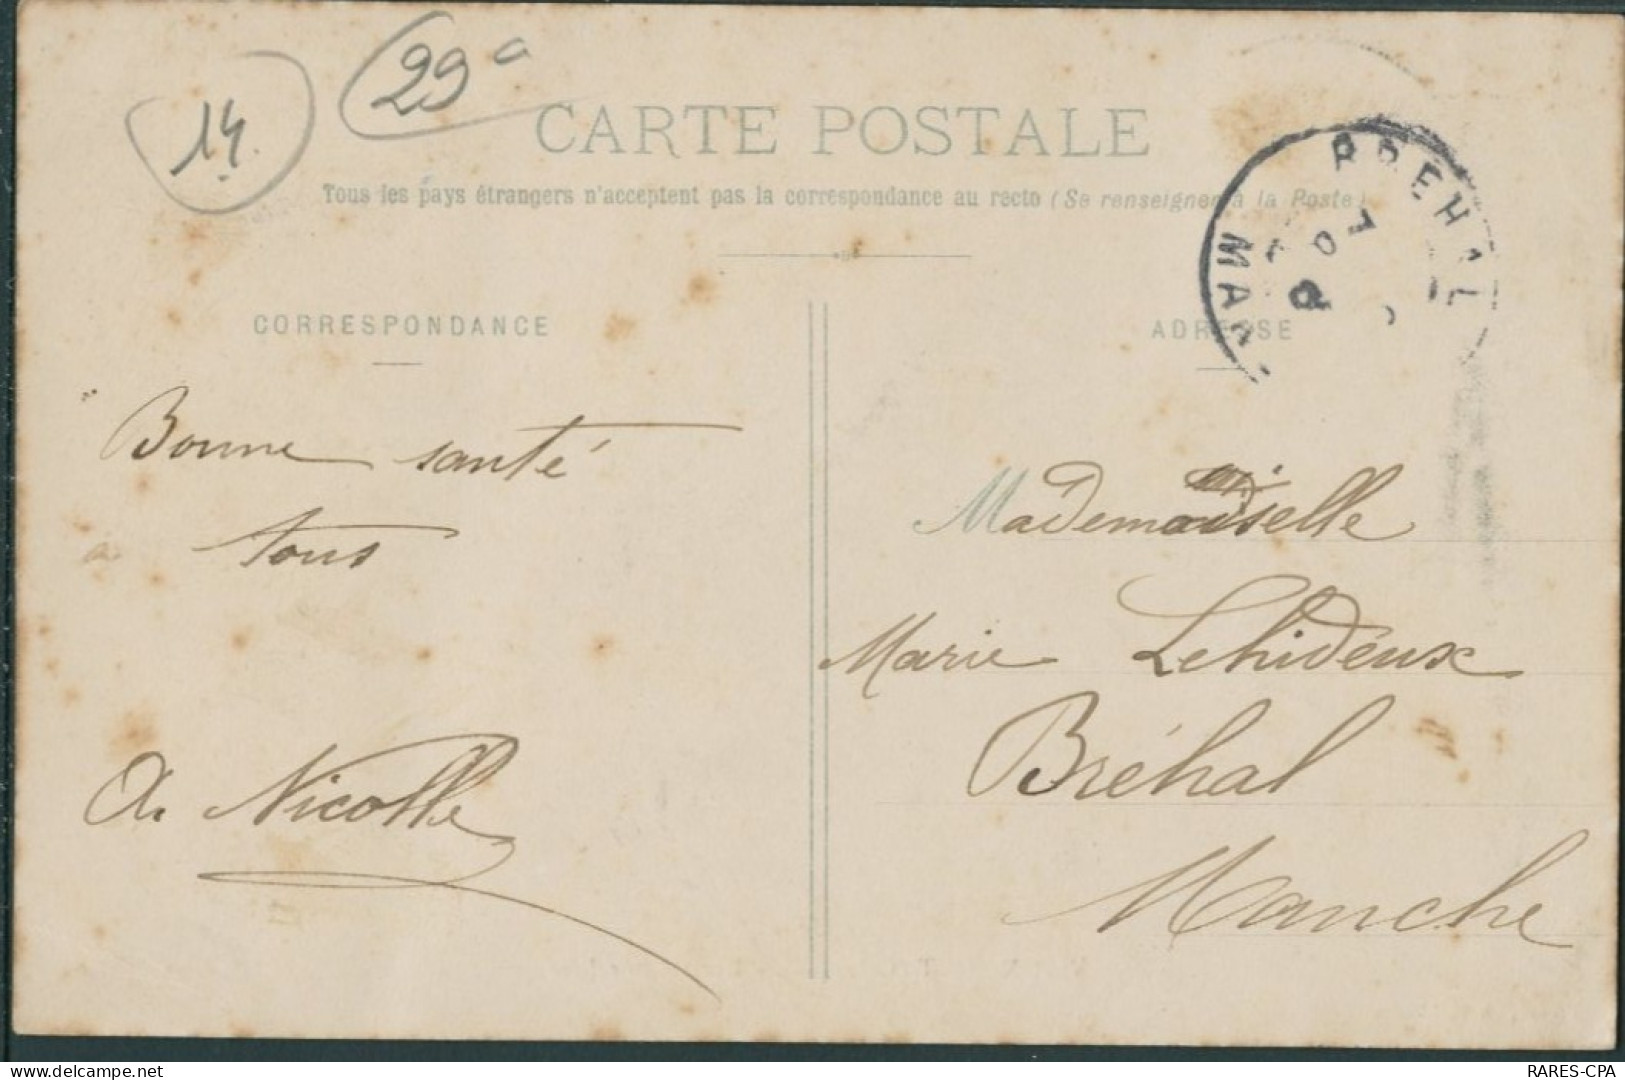 14.
29a
CARTE POSTALE
Tous les pays étrangers n'acceptent pas la correspondance au recto (Se renseigner à la Poste)
BREHAL
CORRESPONDANCE
ADRESSE
Bonne santé
à tous
A. Nicolle
Mademoiselle
Marie Lehideux
Bréhal
Manche
RARES-CPA